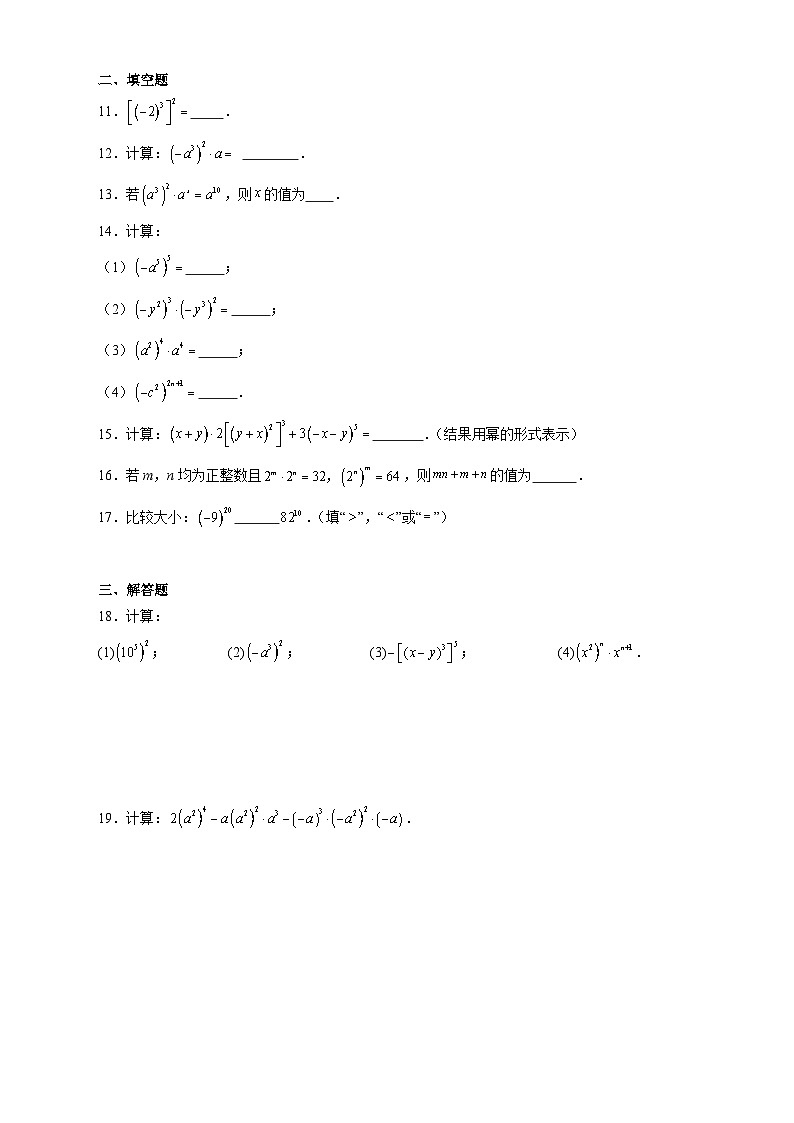 二、填空题
11．$\left[(-2)^3\right]^2=$_____．
12．计算：$\left(-a^3\right)^2\cdot a=$ ________．
13．若$\left(a^3\right)^2\cdot a^x=a^{10}$，则$x$的值为____．
14．计算：
（1）$\left(-a^5\right)^5=$______；
（2）$\left(-y^2\right)^3\cdot\left(-y^3\right)^2=$______；
（3）$\left(a^2\right)^4\cdot a^4=$______；
（4）$\left(-c^2\right)^{2n+1}=$______．
15．计算：$(x+y)\cdot 2\left[(y+x)^2\right]^3+3(-x-y)^5=$________.（结果用幂的形式表示）
16．若m，n均为正整数且$2^m\cdot 2^n=32$，$\left(2^n\right)^m=64$，则$mn+m+n$的值为_______．
17．比较大小：$(-9)^{20}$_______$82^{10}$．（填“>”，“<”或“=”）
三、解答题
18．计算：
(1)$\left(10^5\right)^2$； (2)$\left(-a^3\right)^2$； (3)$-\left[(x-y)^3\right]^5$； (4)$\left(x^2\right)^n\cdot x^{n+1}$．
19．计算：$2\left(a^2\right)^4-a\left(a^2\right)^2\cdot a^3-(-a)^3\cdot\left(-a^2\right)^2\cdot(-a)$．